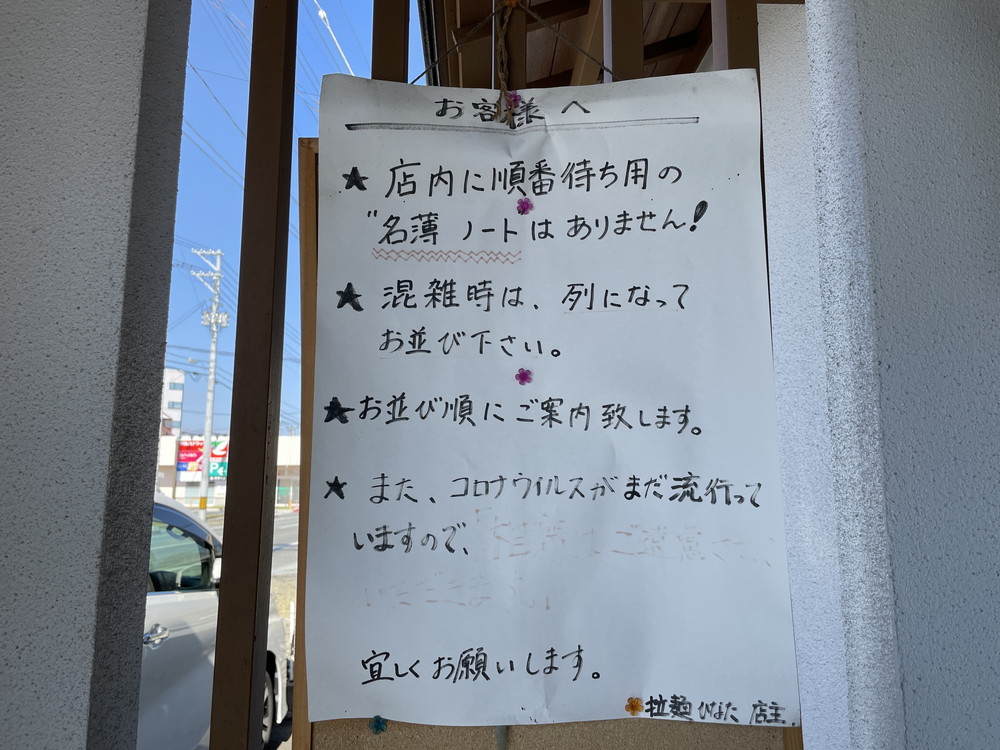 お客様へ
★ 店内に順番待ち用の
"名薄 ノート"はありません!
★ 混雑時は、列になって
お並び下さい。
★お並び順にご案内致します。
★ また、コロナウイルスがまだ流行って
いますので、
宜しくお願いします。
拉麺 ひなた 店主.